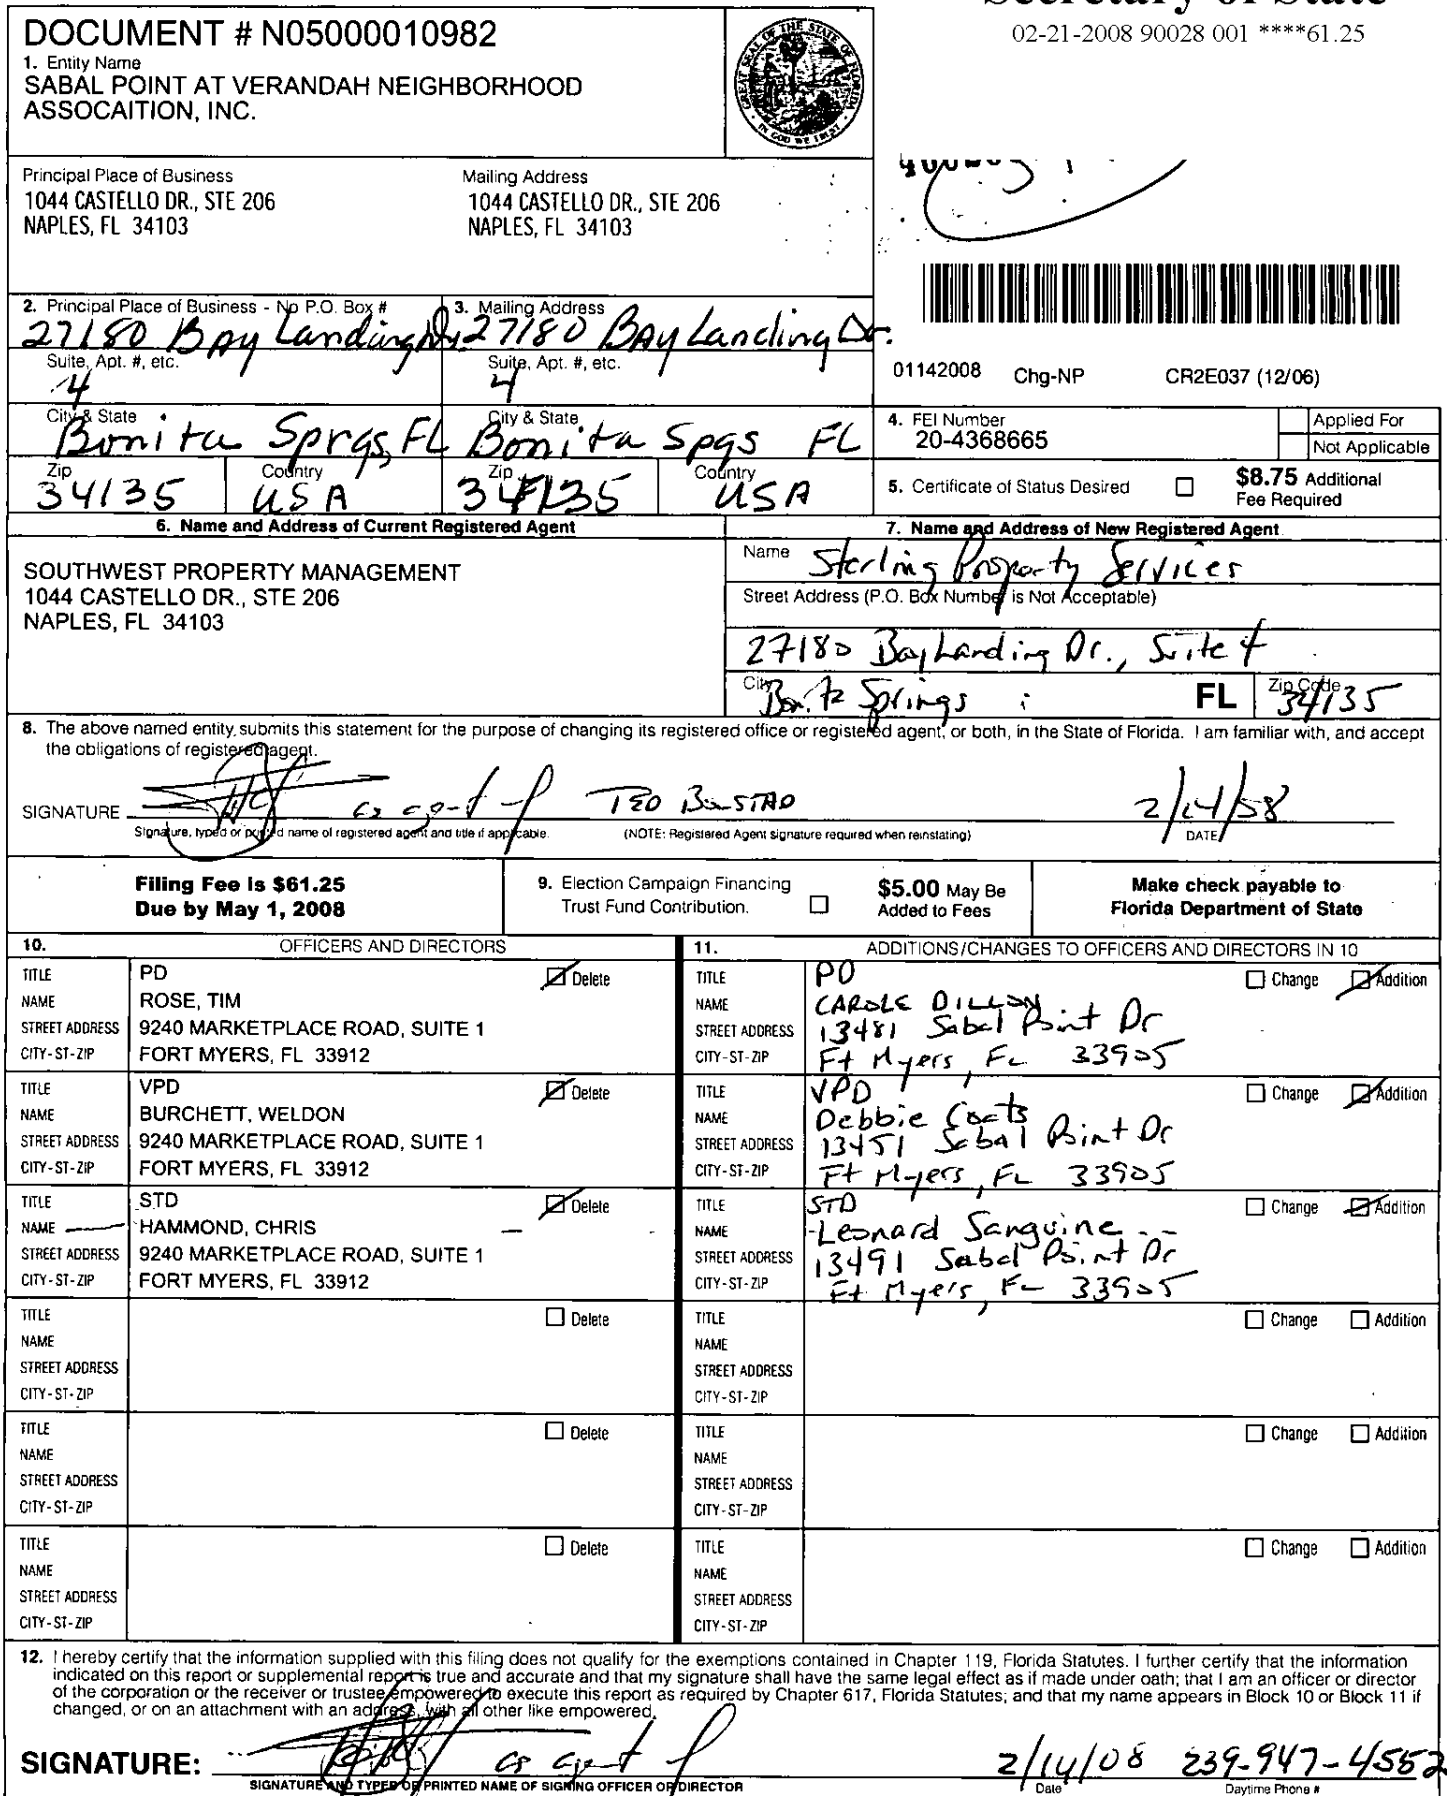 Secretary of State
02-21-2008 90028 001 ****61.25
DOCUMENT # N05000010982
1. Entity Name
SABAL POINT AT VERANDAH NEIGHBORHOOD
ASSOCAITION, INC.
GREAT SEAL OF THE STATE OF FLORIDA
IN GOD WE TRUST
Principal Place of Business
1044 CASTELLO DR., STE 206
NAPLES, FL 34103
Mailing Address
1044 CASTELLO DR., STE 206
NAPLES, FL 34103
2. Principal Place of Business - No P.O. Box #
27180 Bay Landing Dr.
3. Mailing Address
27180 Bay Landing Dr.
Suite, Apt. #, etc.
4
Suite, Apt. #, etc.
4
01142008 Chg-NP CR2E037 (12/06)
City & State
Bonita Sprgs, FL
City & State
Bonita Spgs FL
4. FEI Number
20-4368665
Applied For
Not Applicable
Zip
34135
Country
USA
Zip
34135
Country
USA
5. Certificate of Status Desired
$8.75 Additional
Fee Required
6. Name and Address of Current Registered Agent
SOUTHWEST PROPERTY MANAGEMENT
1044 CASTELLO DR., STE 206
NAPLES, FL 34103
7. Name and Address of New Registered Agent
Name Sterling Property Services
Street Address (P.O. Box Number is Not Acceptable)
27180 Bay Landing Dr., Suite 4
City Bonita Springs FL Zip Code 34135
8. The above named entity submits this statement for the purpose of changing its registered office or registered agent, or both, in the State of Florida. I am familiar with, and accept
the obligations of registered agent.
SIGNATURE as agent f
2/14/08
Signature, typed or printed name of registered agent and title if applicable. (NOTE: Registered Agent signature required when reinstating) DATE
Filing Fee is $61.25
Due by May 1, 2008
9. Election Campaign Financing
Trust Fund Contribution.
$5.00 May Be
Added to Fees
Make check payable to
Florida Department of State
10. OFFICERS AND DIRECTORS
TITLE PD Delete
NAME ROSE, TIM
STREET ADDRESS 9240 MARKETPLACE ROAD, SUITE 1
CITY-ST-ZIP FORT MYERS, FL 33912
TITLE VPD Delete
NAME BURCHETT, WELDON
STREET ADDRESS 9240 MARKETPLACE ROAD, SUITE 1
CITY-ST-ZIP FORT MYERS, FL 33912
TITLE STD Delete
NAME HAMMOND, CHRIS
STREET ADDRESS 9240 MARKETPLACE ROAD, SUITE 1
CITY-ST-ZIP FORT MYERS, FL 33912
TITLE Delete
NAME
STREET ADDRESS
CITY-ST-ZIP
TITLE Delete
NAME
STREET ADDRESS
CITY-ST-ZIP
TITLE Delete
NAME
STREET ADDRESS
CITY-ST-ZIP
11. ADDITIONS/CHANGES TO OFFICERS AND DIRECTORS IN 10
TITLE PD Change Addition
NAME CAROLE DILLON
STREET ADDRESS 13481 Sabal Point Dr
CITY-ST-ZIP Ft Myers, FL 33905
TITLE VPD Change Addition
NAME Debbie Coats
STREET ADDRESS 13451 Sabal Point Dr
CITY-ST-ZIP Ft Myers, FL 33905
TITLE STD Change Addition
NAME Leonard Sanguine
STREET ADDRESS 13491 Sabal Point Dr
CITY-ST-ZIP Ft Myers, FL 33905
TITLE Change Addition
NAME
STREET ADDRESS
CITY-ST-ZIP
TITLE Change Addition
NAME
STREET ADDRESS
CITY-ST-ZIP
TITLE Change Addition
NAME
STREET ADDRESS
CITY-ST-ZIP
12. I hereby certify that the information supplied with this filing does not qualify for the exemptions contained in Chapter 119, Florida Statutes. I further certify that the information
indicated on this report or supplemental report is true and accurate and that my signature shall have the same legal effect as if made under oath; that I am an officer or director
of the corporation or the receiver or trustee empowered to execute this report as required by Chapter 617, Florida Statutes; and that my name appears in Block 10 or Block 11 if
changed, or on an attachment with an address, with all other like empowered.
SIGNATURE: as agent f 2/14/08 239-947-4552
SIGNATURE AND TYPED OR PRINTED NAME OF SIGNING OFFICER OR DIRECTOR Date Daytime Phone #